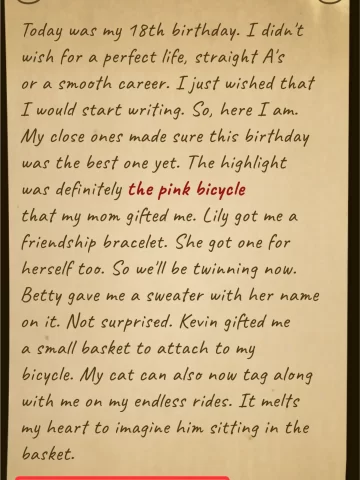 Today was my 18th birthday. I didn't
wish for a perfect life, straight A's
or a smooth career. I just wished that
I would start writing. So, here I am.
My close ones made sure this birthday
was the best one yet. The highlight
was definitely the pink bicycle
that my mom gifted me. Lily got me a
friendship bracelet. She got one for
herself too. So we'll be twinning now.
Betty gave me a sweater with her name
on it. Not surprised. Kevin gifted me
a small basket to attach to my
bicycle. My cat can also now tag along
with me on my endless rides. It melts
my heart to imagine him sitting in the
basket.